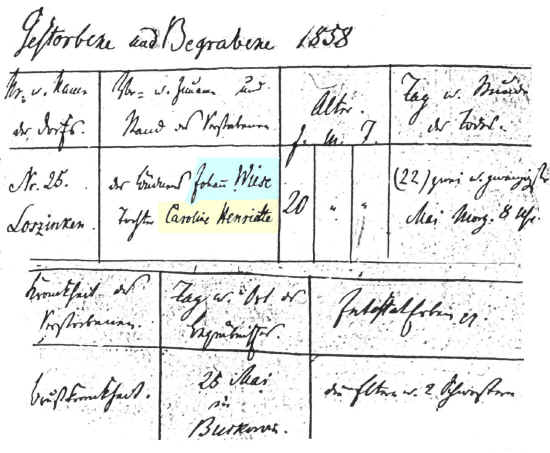 Gestorbene und Begrabene 1858
Nr. u. Name
des Dorfs.
Vor- u. Zuname und
Stand des Verstorbenen
Alter
J. M. T.
Tag u. Stunde
des Todes.
Nr. 25.
Loszinken
des Johann Wiese
Tochter Caroline Henriette
20 " "
(22) zwei u. zwanzigst
Mai Morg. 8 Uhr.
Krankheit des
Verstorbenen.
Tag u. Ort des
Begräbnisses
Intestat Erben
Brustkrankheit.
25 Mai
in
die Eltern u. 2 Schwestern